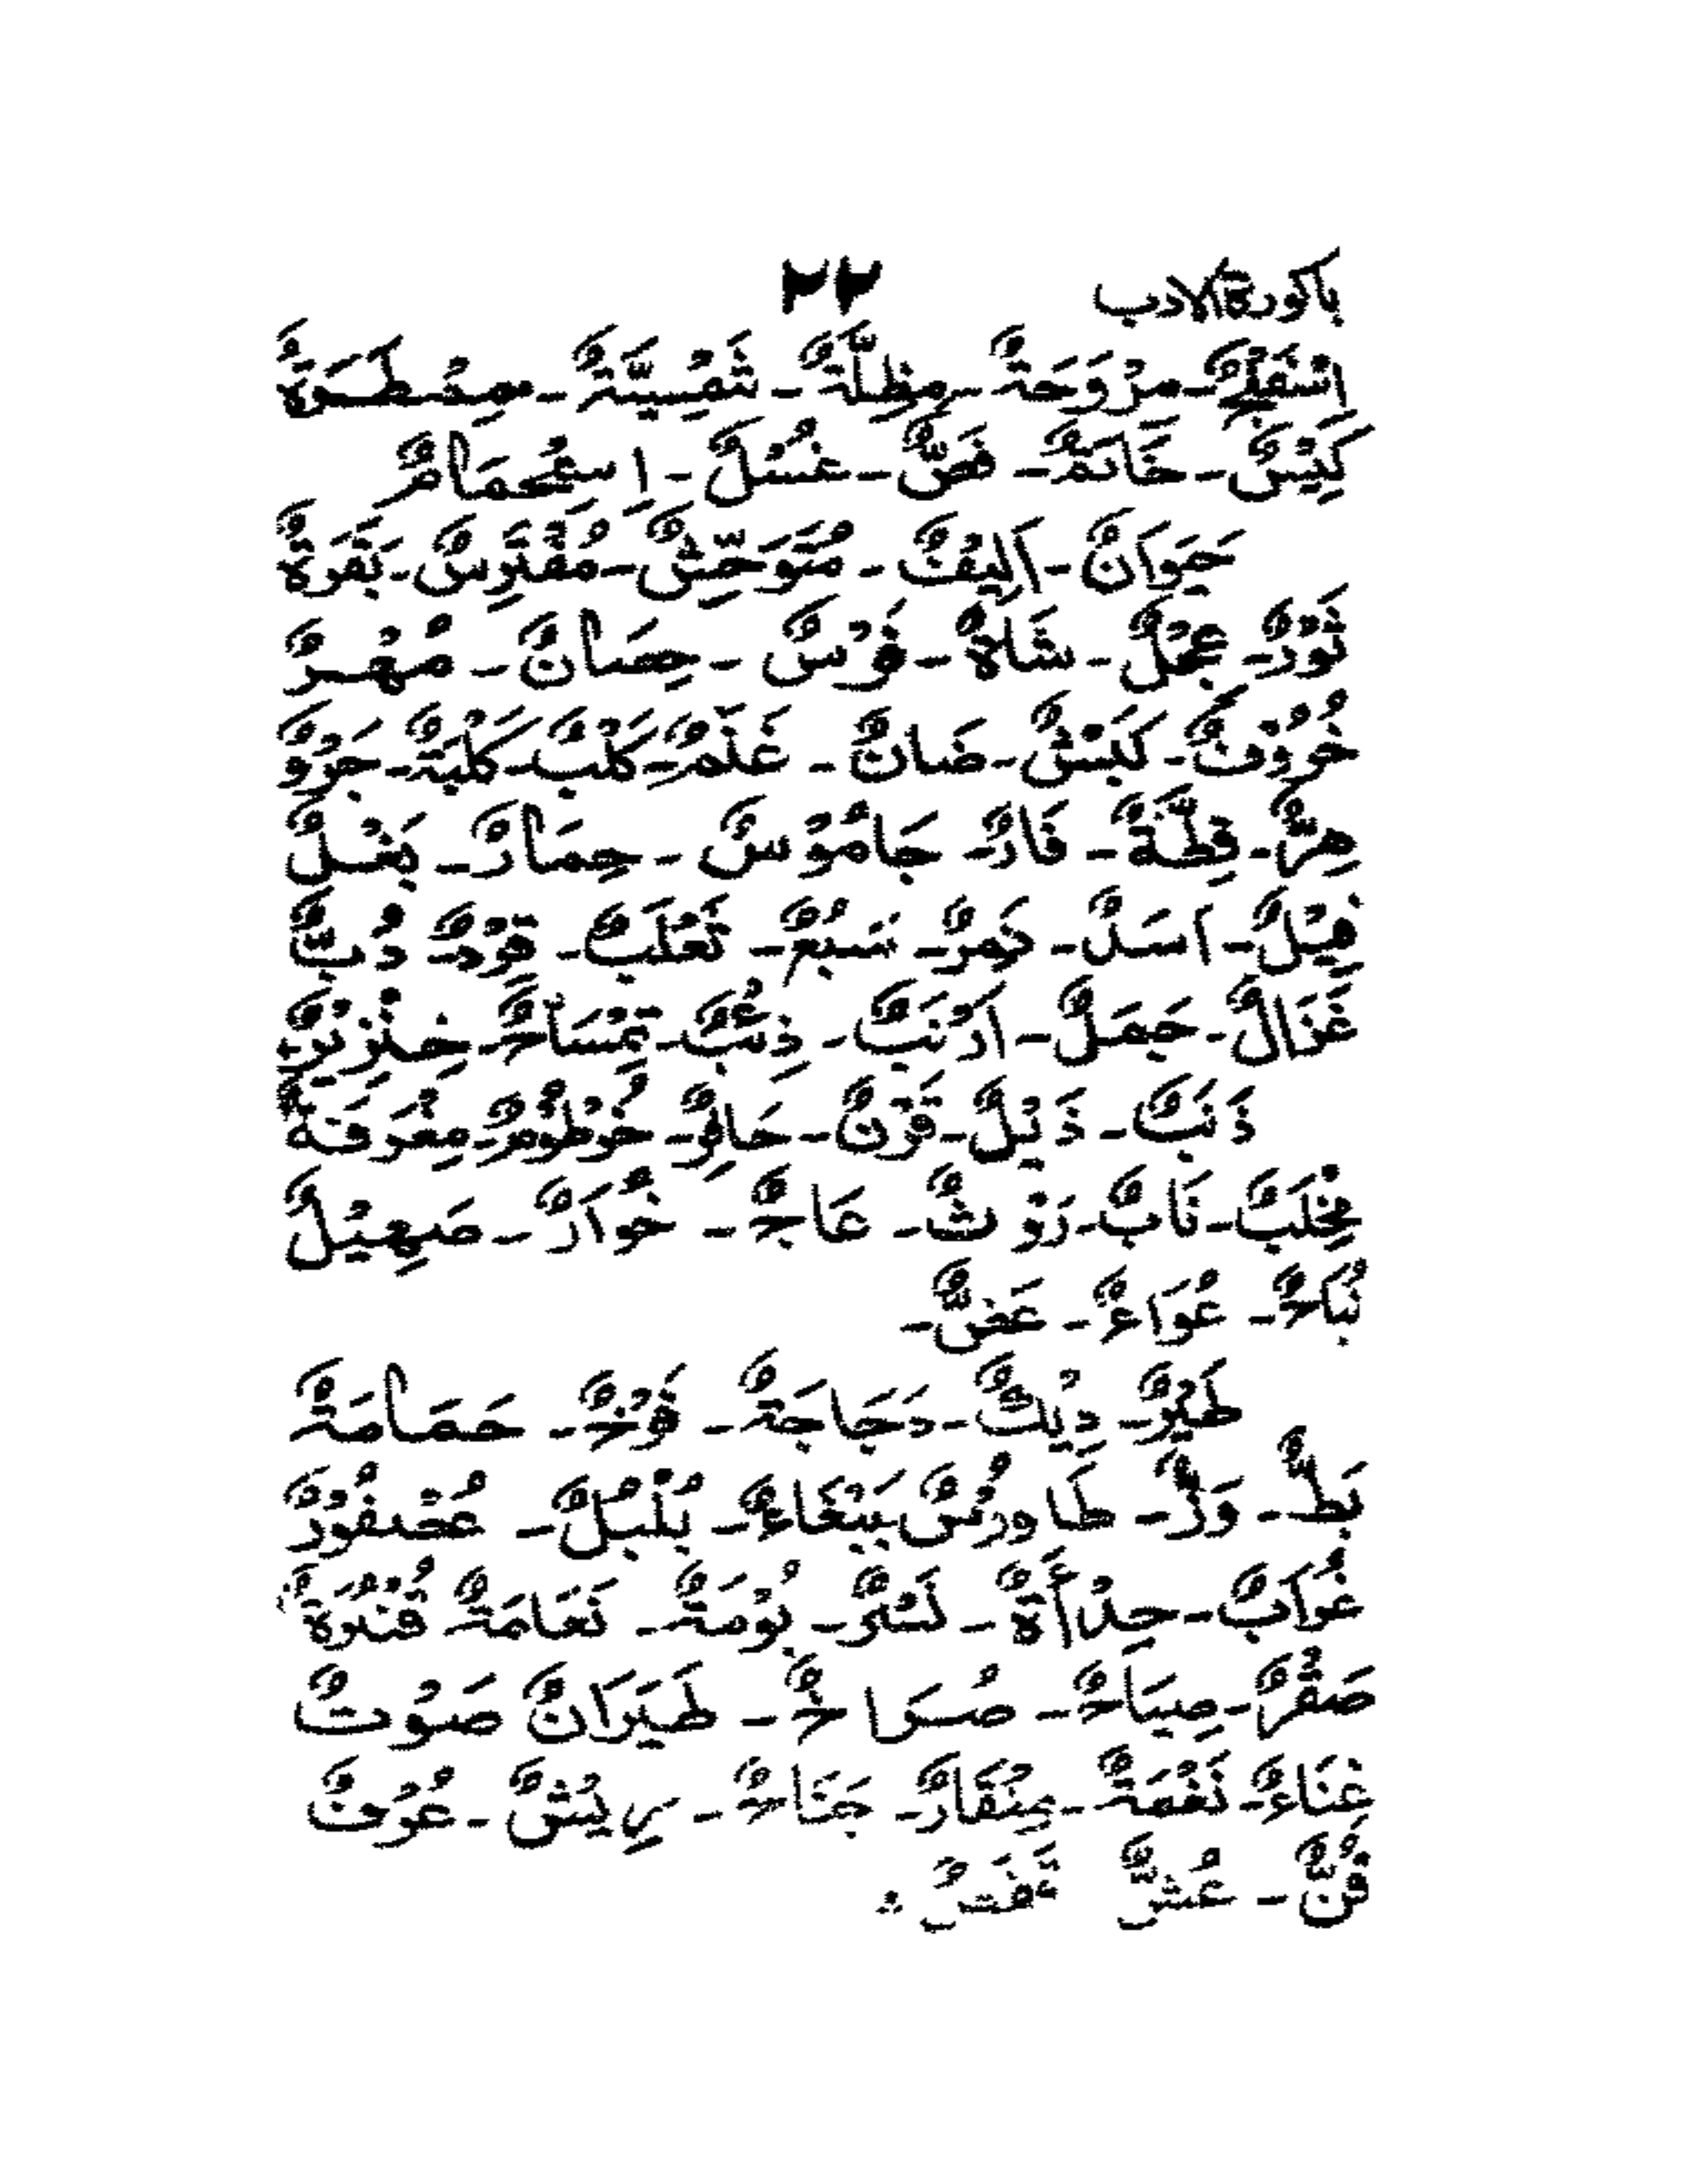 باكورة الادب ٢٢
اِسْفَنْجٌ - مِرْوَحَةٌ - مِظَلَّةٌ - شَمْسِيَّةٌ - مِمْطَرَةٌ
كِيْسٌ - خَاتَمٌ - فَصٌّ - غُسْلٌ - اِسْتِحْمَامٌ
حَيَوَانٌ - اَلِيْفٌ - مُتَوَحِّشٌ - مُفْتَرِسٌ - بَقَرَةٌ
ثَوْرٌ - عِجْلٌ - شَاةٌ - فَرْسٌ - حِصَانٌ - مُهْرٌ
خُرُوْفٌ - كَبْشٌ - ضَانٌ - غَنَمٌ - كَلْبٌ - كَلْبَةٌ - جَرْوٌ
هِرٌّ - قِطَّةٌ - فَارٌ - جَامُوْسٌ - حِمَارٌ - بَغْلٌ
فِيْلٌ - اَسَدٌ - نَمِرٌ - سَبُعٌ - ثَعْلَبٌ - قِرْدٌ - دُبٌّ
غَزَالٌ - جَمَلٌ - اَرْنَبٌ - ذِئْبٌ - تِمْسَاحٌ - خِنْزِيْرٌ
ذَنَبٌ - ذَيْلٌ - قَرْنٌ - حَافِرٌ - خُرْطُوْمٌ - مِعْرَفَةٌ
مِخْلَبٌ - نَابٌ - رَوْثٌ - عَاجٌ - خُوَارٌ - صَهِيْلٌ
نُبَاحٌ - عُوَاءٌ - عَضٌّ -
طَيْرٌ - دِيْكٌ - دَجَاجَةٌ - فَرْخٌ - حَمَامَةٌ
بَطٌّ - وَزٌّ - طَاوُوْسٌ بَبْغَاءٌ - بُلْبُلٌ - عُصْفُوْرٌ
غُرَابٌ - حِدْأَةٌ - نَسْرٌ - بُوْمَةٌ - نَعَامَةٌ قُنْبُرَةٌ
صَقْرٌ - صِيَاحٌ - صُرَاخٌ - طَيَرَانٌ صَوْتٌ
غِنَاءٌ - نَغْمَةٌ - مِنْقَارٌ - جَنَاحٌ - رِيْشٌ - عُرْفٌ
قُنٌّ - عُشٌّ قَفَصٌ